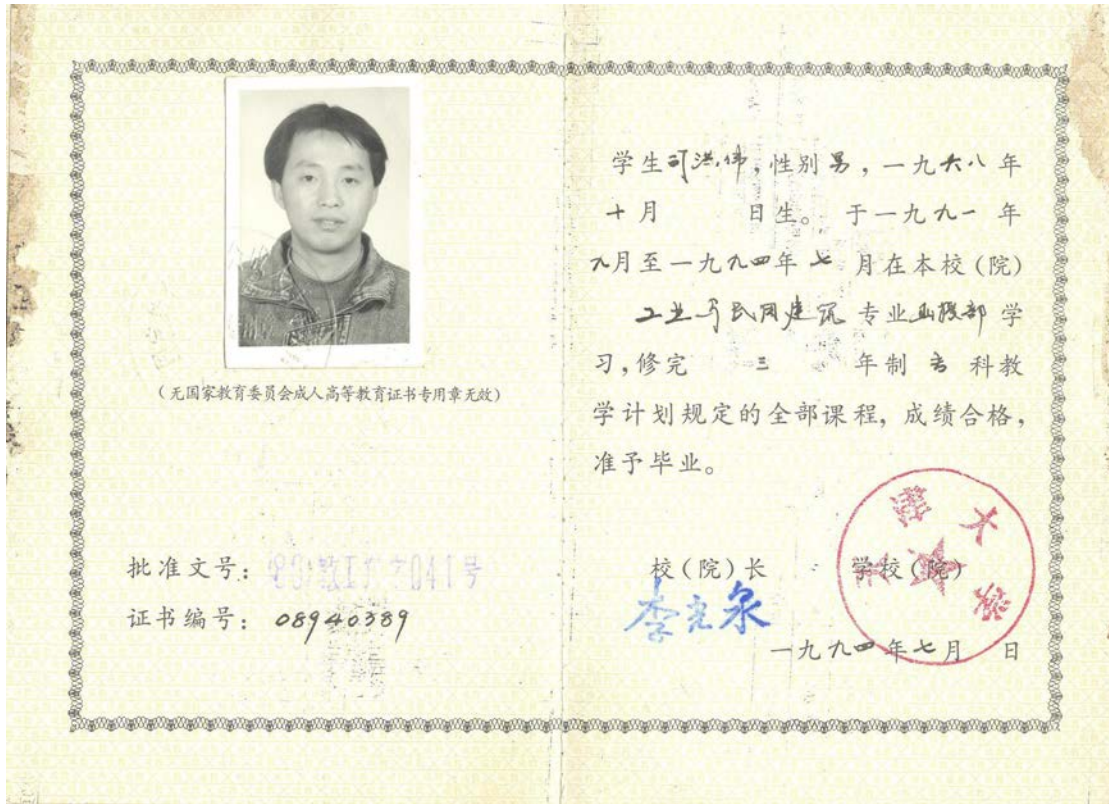 (无国家教育委员会成人高等教育证书专用章无效)
批准文号:
证书编号: 08940389
学生司洪伟,性别男,一九六八年
十月 日生。于一九九一年
九月至一九九四年七月在本校(院)
工业与民用建筑专业函授部学
习,修完 三 年制专科教
学计划规定的全部课程,成绩合格,
准予毕业。
校(院)长 学校(院)
李光泉
一九九四年七月 日
大学